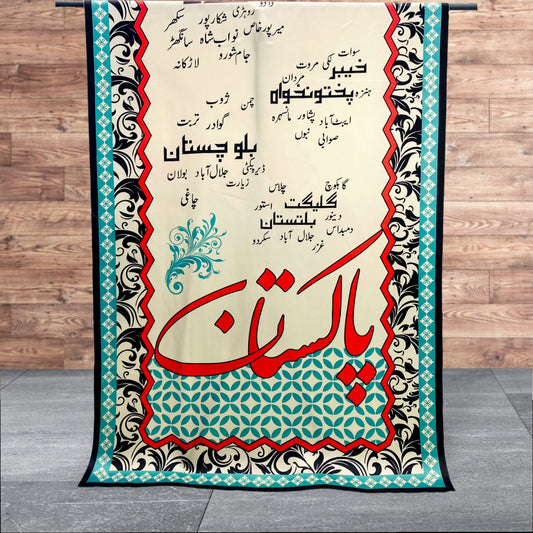 دادو
سکھر شکارپور روہڑی
سانگھڑ نواب شاہ میرپورخاص
لاڑکانہ جامشورو
سوات
لکی مروت خیبر
مردان
ہنزہ پختونخواہ
ایبٹ آباد پشاور مانسہرہ
صوابی بنوں
چمن ژوب
گوادر تربت
بلوچستان
ڈیرہ بگٹی جلال آباد بولان
زیارت
چاغی
گاہکوچ چلاس
گلیگت استور
دینور بلتستان
دمبداس جلال آباد سکردو
غزر
پاکستان